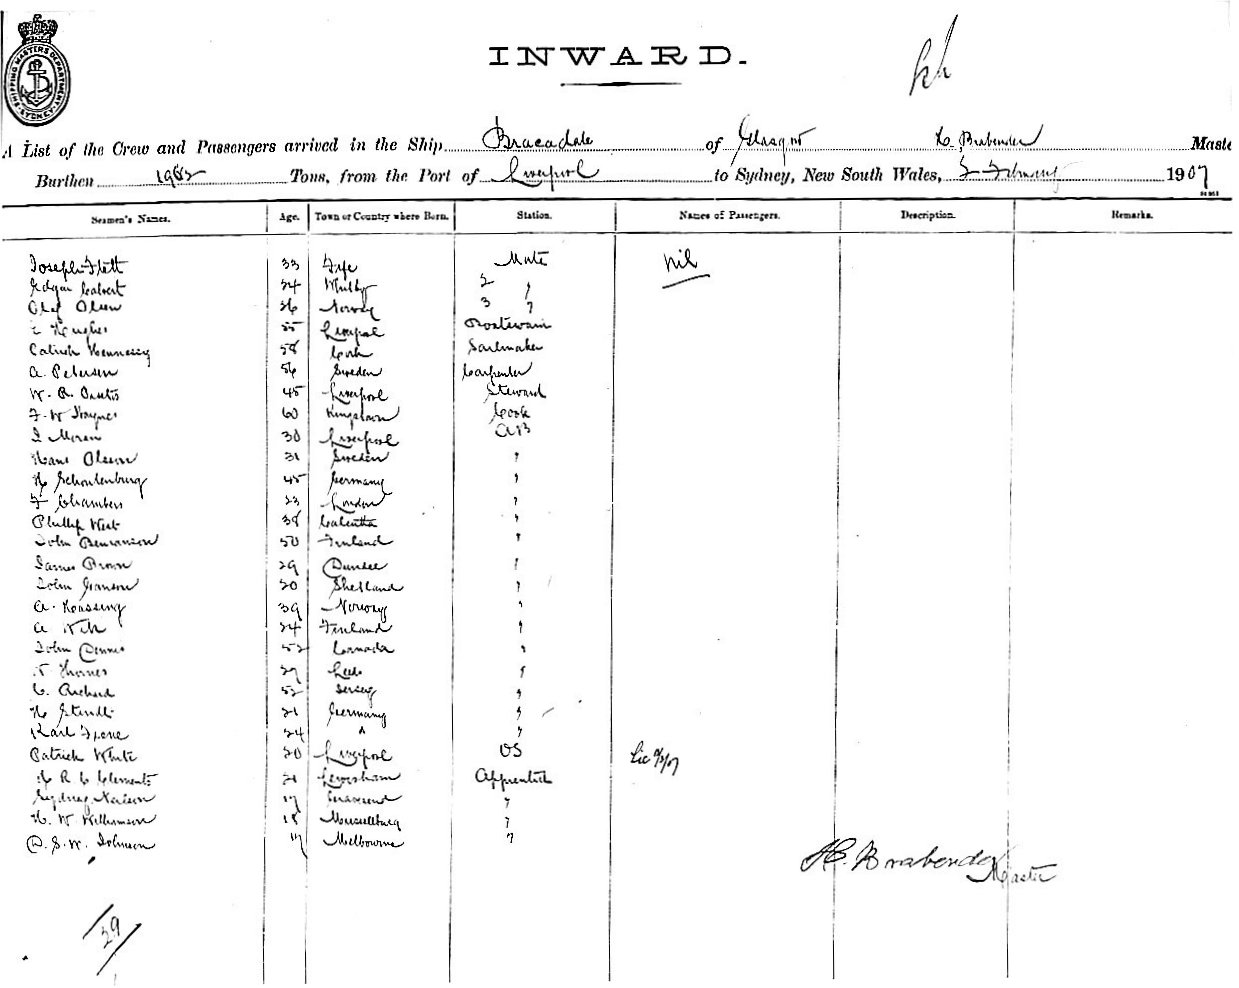 SHIPPING MASTERS DEPARTMENT SYDNEY
INWARD.
A List of the Crew and Passengers arrived in the Ship Bracadale of Glasgow H. Brabender Maste
Burthen 1982 Tons, from the Port of Liverpool to Sydney, New South Wales, 2 February 1907
Seamen's Names. Age. Town or Country where Born. Station. Names of Passengers. Description. Remarks.
Joseph Flett 33 Fife Mate Nil
Edgar Calvert 24 Whitby 2 "
Olaf Olsen 26 Norway 3 "
Hughes 55 Liverpool Boatswain
Patrick Hennessy 58 Cork Sailmaker
A. Petersen 56 Sweden Carpenter
W. R. 45 Liverpool Steward
F. W 60 Kingstown Cook
Moran 30 Liverpool AB
Hans Olsson 31 Sweden "
H Schoulenburg 45 Germany "
F Chambers 23 London "
Phillip West 38 Calcutta "
John 50 Finland "
James Brown 29 Dundee "
John 20 Shetland "
A. 39 Norway "
A 24 Finland "
John Dennis 52 Canada "
Thomas 27 Leeds "
C. Richard 52 Jersey "
H 21 Germany "
Karl 24 " "
Patrick White 20 Liverpool OS
H R C Clements 21 Lewisham Apprentice
Sydney Neilson 17 Gravesend "
H. W Williamson 18 Musselburg "
D. S. W. Johnson 17 Melbourne "
H. Brabender
Master
/29/